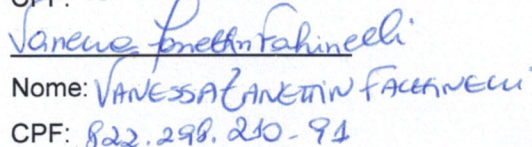 CPF:
Vanessa Zanettin Fachinelli
Nome: VANESSA ZANETTIN FACCHINELLI
CPF: 822.298.210-91